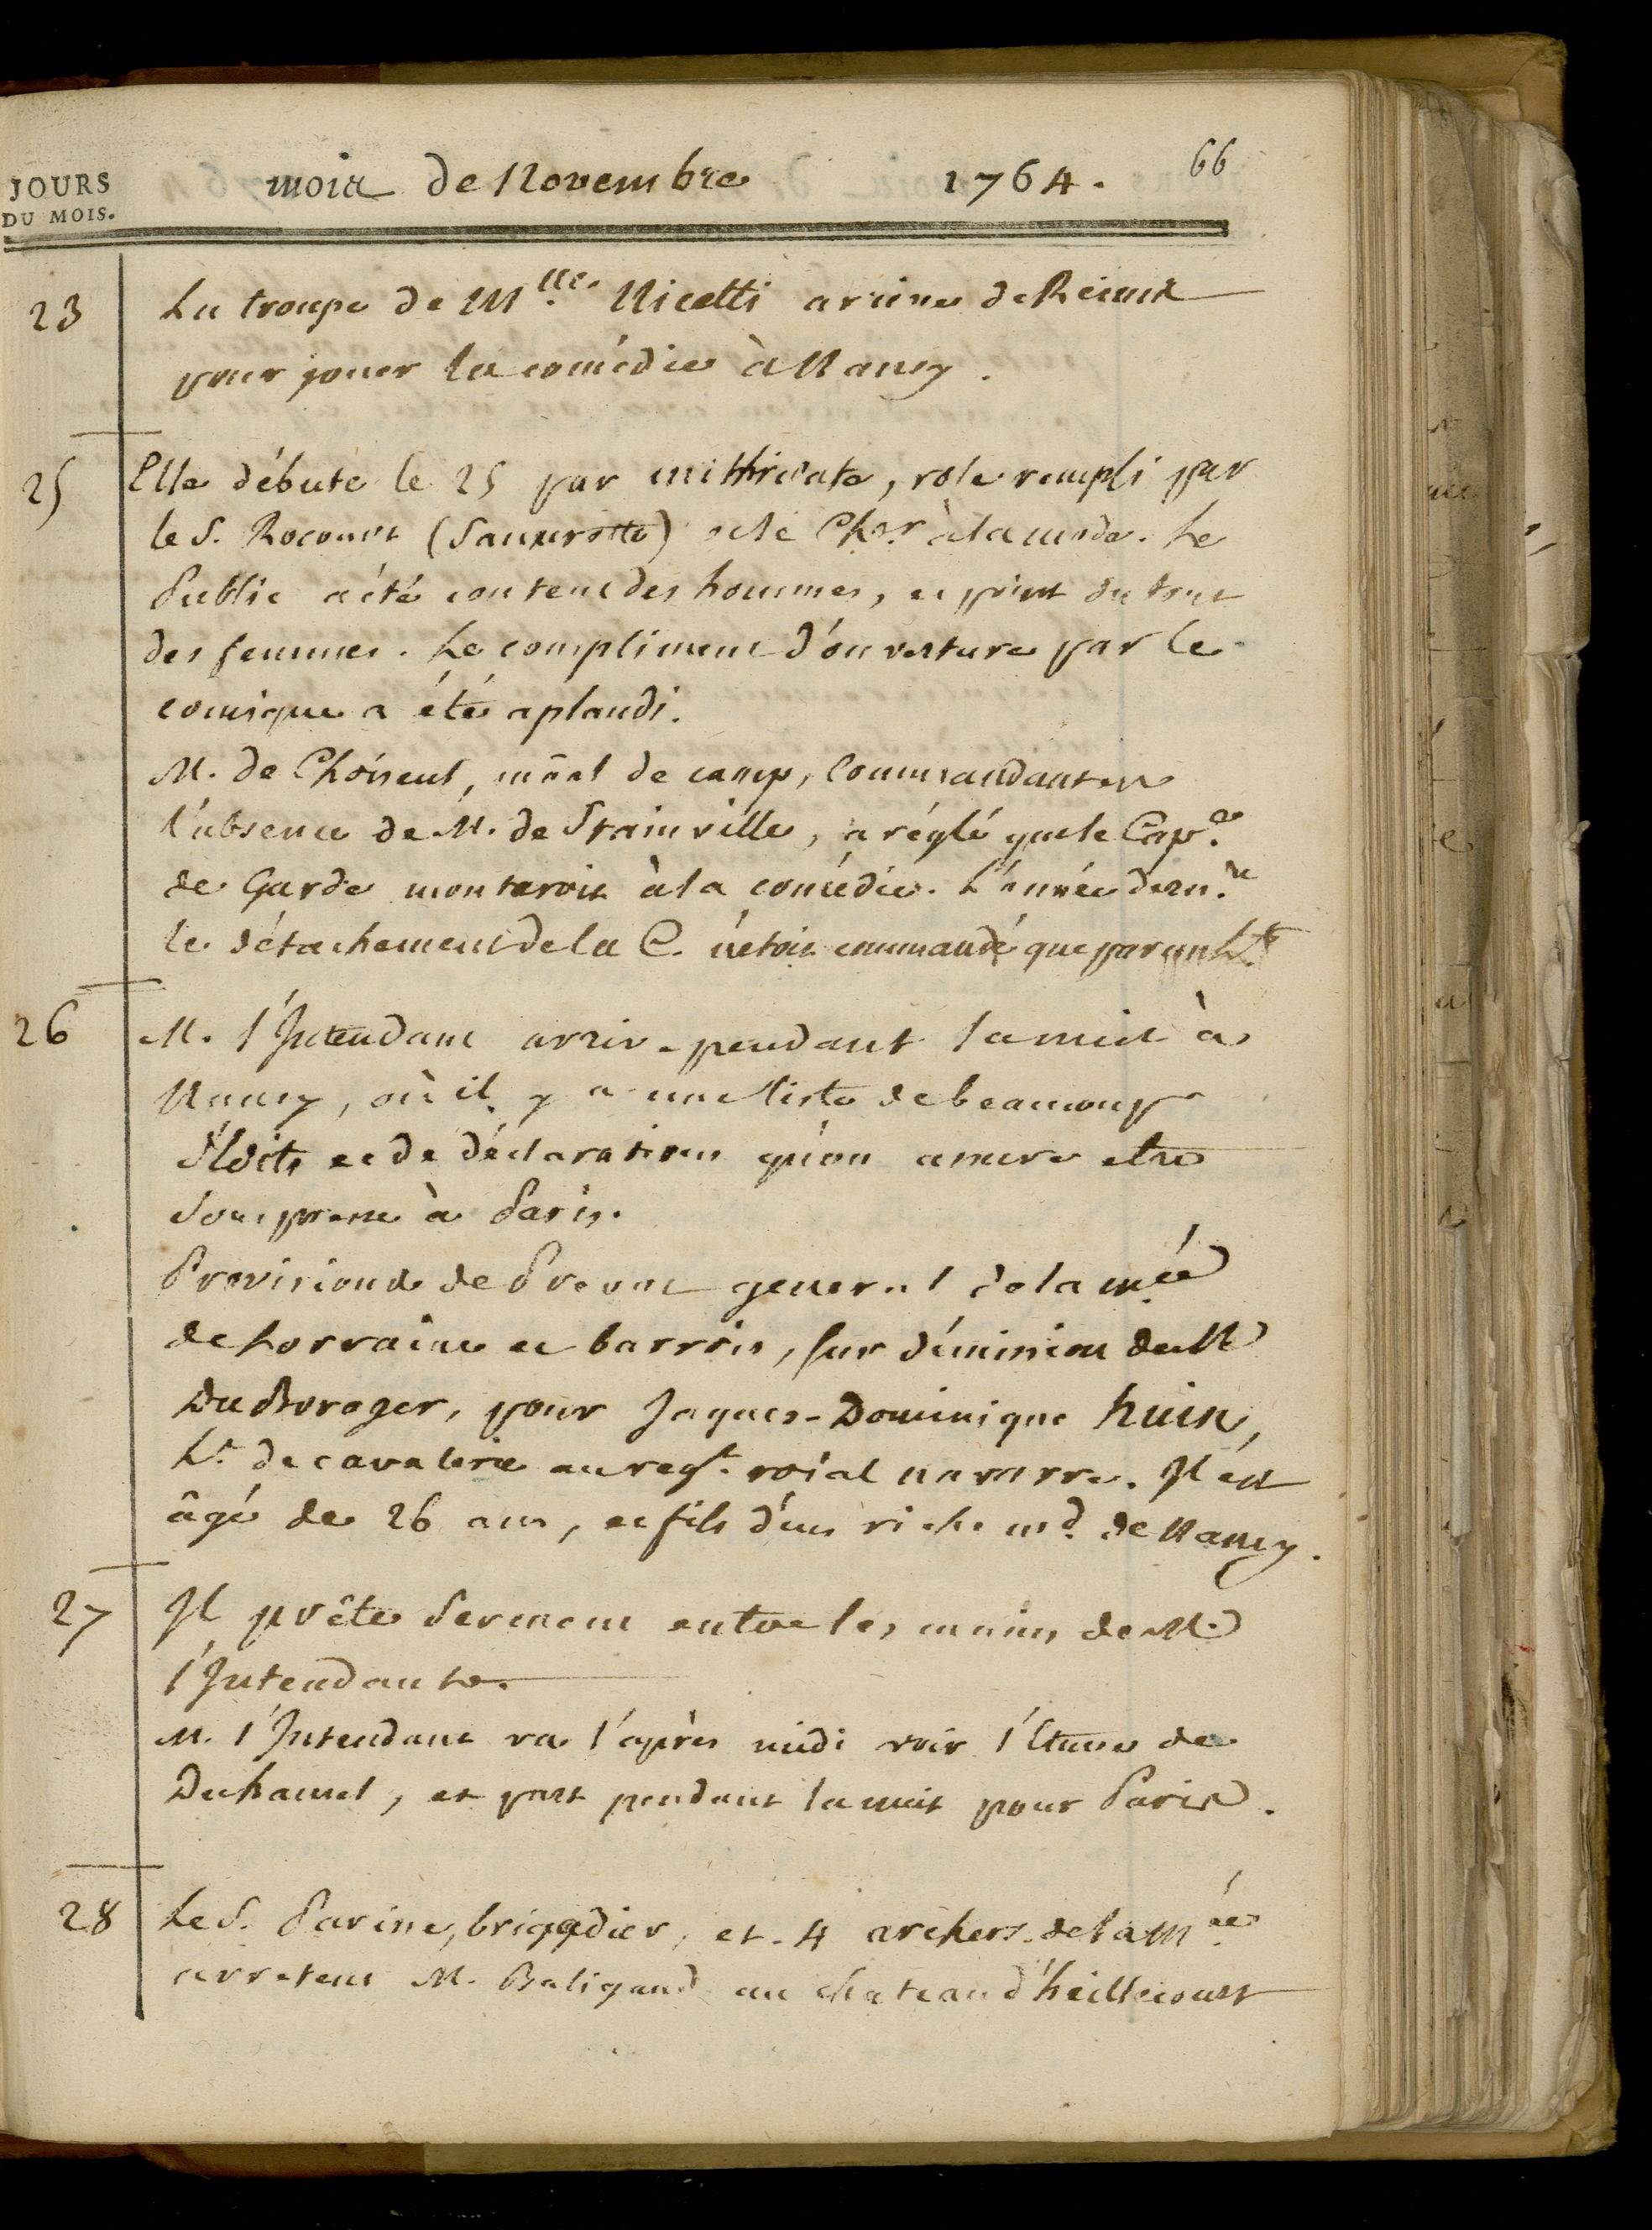 JOURS
DU MOIS.
mois de Novembre 1764. 66
23 La troupe de M.lle Nicetti arrive de Reims
pour jouer la comédie à Nancy.
25 Elle débute le 25 par mithridate, role rempli par
le S. Rocourt (Saucerotte) et le Ch.er à la mode. Le
Public a été content des hommes, et point du tout
des femmes. Le compliment d'ouverture par le
comique a été aplaudi.
M. de Choiseul, mãal de camp, Commandant en
l'absence de M. de Stainville, a réglé que le Cap.e
de Garde monteroit à la comédie. L'année dern.re
le détachement de la C. n'etoit commandé que par un Lt
26 M. l'Intendant arrive pendant la nuit à
Nancy, où il y a une liste de beaucoup
d'Edits et de déclarations qu'on assure etre
sous presse à Paris.
Provisions de Prevot general de la m.ée
de Lorraine et barrois, sur démission de M
Du Burager, pour Jaques-Dominique huin,
L.t de cavalerie au reg.t roïal navarre. Il est
âgé de 26 ans, et fils d'un riche m.d de Nancy.
27 Il prête serment entre les mains de M.
l'Intendant.
M. l'Intendant va l'après midi voir l'Etuve de
Duhamel, et part pendant la nuit pour Paris.
28 Le S. Parine, brigadier, et 4 archers de la M.ée
arretent M. Baligand au chateau d'heillecourt